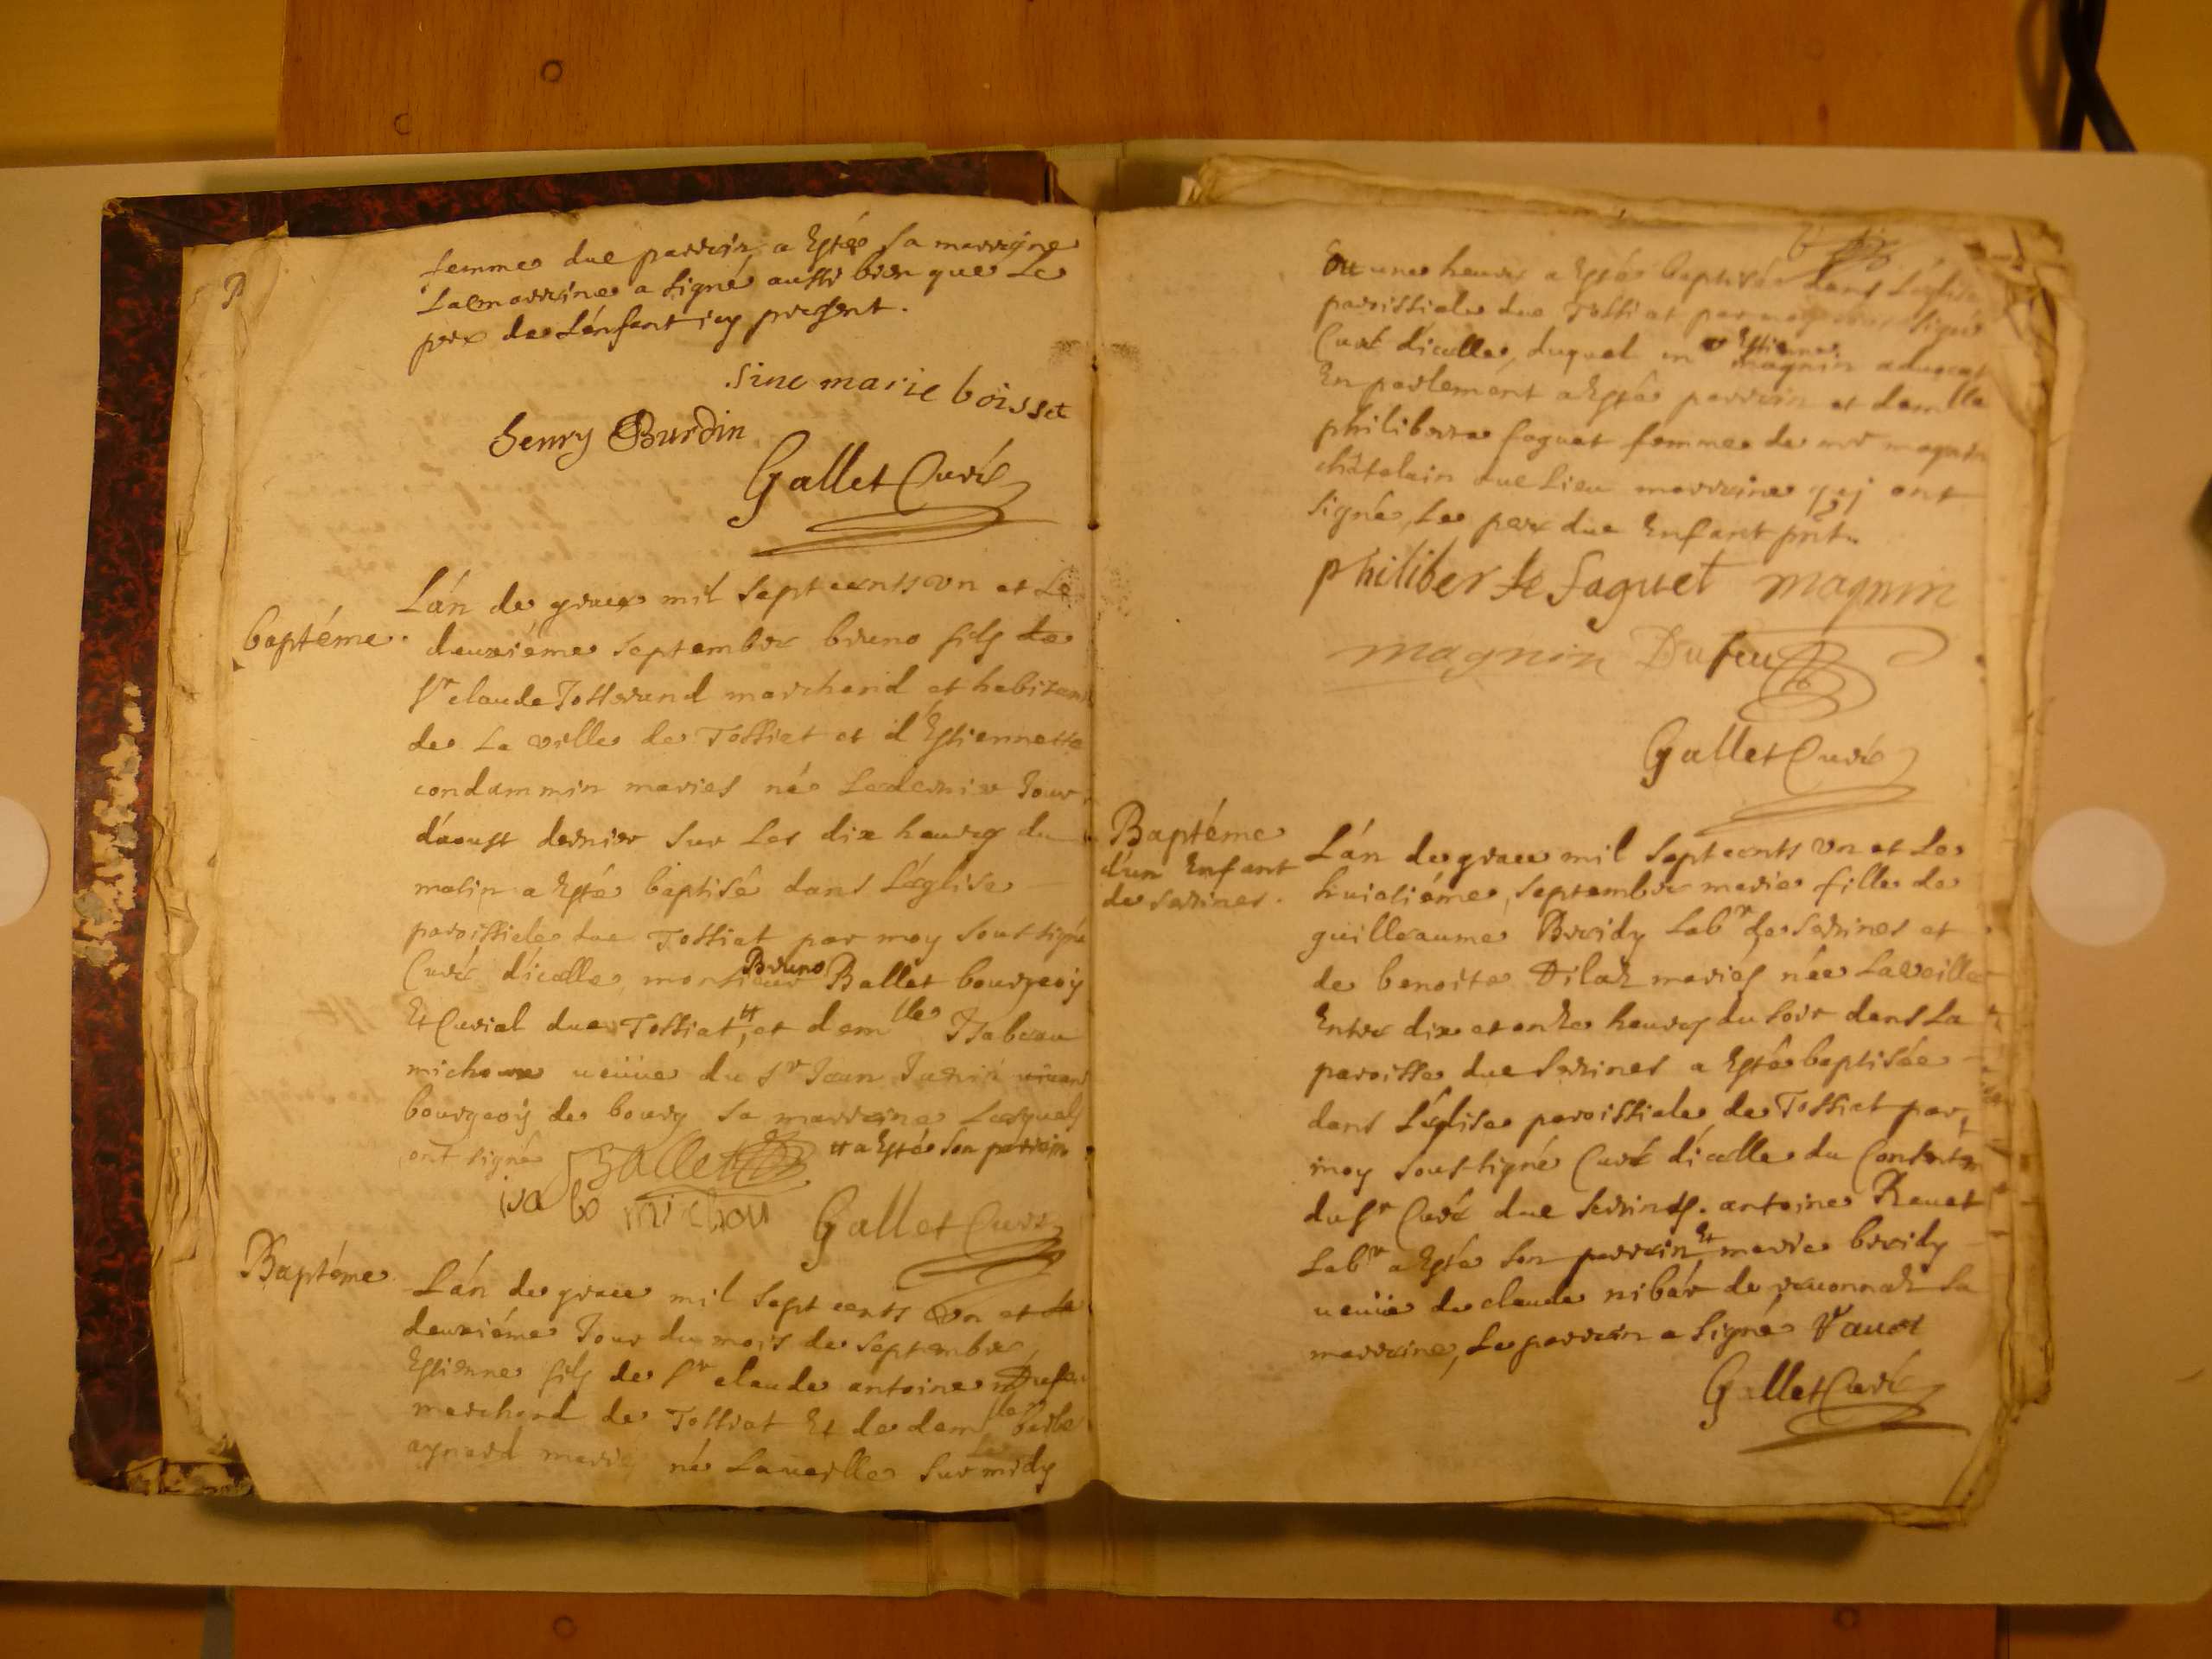 femme dud parrain a Esté Sa marraine
La marraine a signé aussi bien que Le
pere de L'énfant icy present.
sine marie boisset
henry Burdin
Gallet Curé
baptéme.
L'án de grace mil Septcents vn et Le
deuxiéme Septembre bruno fils de
Sr claude Josserand marchand et habitant
de La ville de Tossiat et d'Estiennette
condammin mariés né Le dernier Jour
d'áoust dernier sur Les dix heures du
matin a Esté baptisé dans L'église
paroissiale dud Tossiat par moy soussigné
Curé d'icelle, monsieur Bruno Ballet bourgeois
Et Curial dud Tossiat, tt et damlle Isabeau
michon veüue du Sr Jean vivant
bourgeois de bourg Sa marraine Lesquels
ont signé tt a Esté Son parrain
Ballet
isabo michon
Gallet Curé
Baptéme
L'án de grace mil Sept cents vn et Le
deuxiéme Jour du mois de Septembre,
Estienne fils de Sr claude antoine Dufeu
marchand de Tossiat Et de damlle
aynard né La veille Sur Le midy
Ou une heure a Esté baptisé dans L'église
paroissiale dud Tossiat par moy sous signé
Curé d'icelle, duquel mr Estienne magnin aduocat
En parlement a Esté parrain et damlle
philiberte faguet femme de mr magnin
châtelain dud Lieu marraine qui ont
signé, Le pere dud Enfant pnt.
philiberte faguet magnin
magnin Dufeu
Gallet Curé
Baptéme
d'un Enfant
de Serines.
L'án de grace mil Septcents vn et Le
huictiéme, Septembre marie fille de
guilleaume Bridy Labr de Serines et
de benoite Dilaz mariés née La veille
Entre dix et onze heures du Soir dans La
paroisse dud Serines a Esté baptisée
dans L'église paroissiale de Tossiat par
moy soussigné Curé d'icelle du Consentem
du Sr Curé dud Serines. antoine Reuet
Labr a Esté Son parrain Et marie bridy
ueüue de claude nibár de reuonnaz Sa
marraine, Le parrain a Signé
Gallet Curé